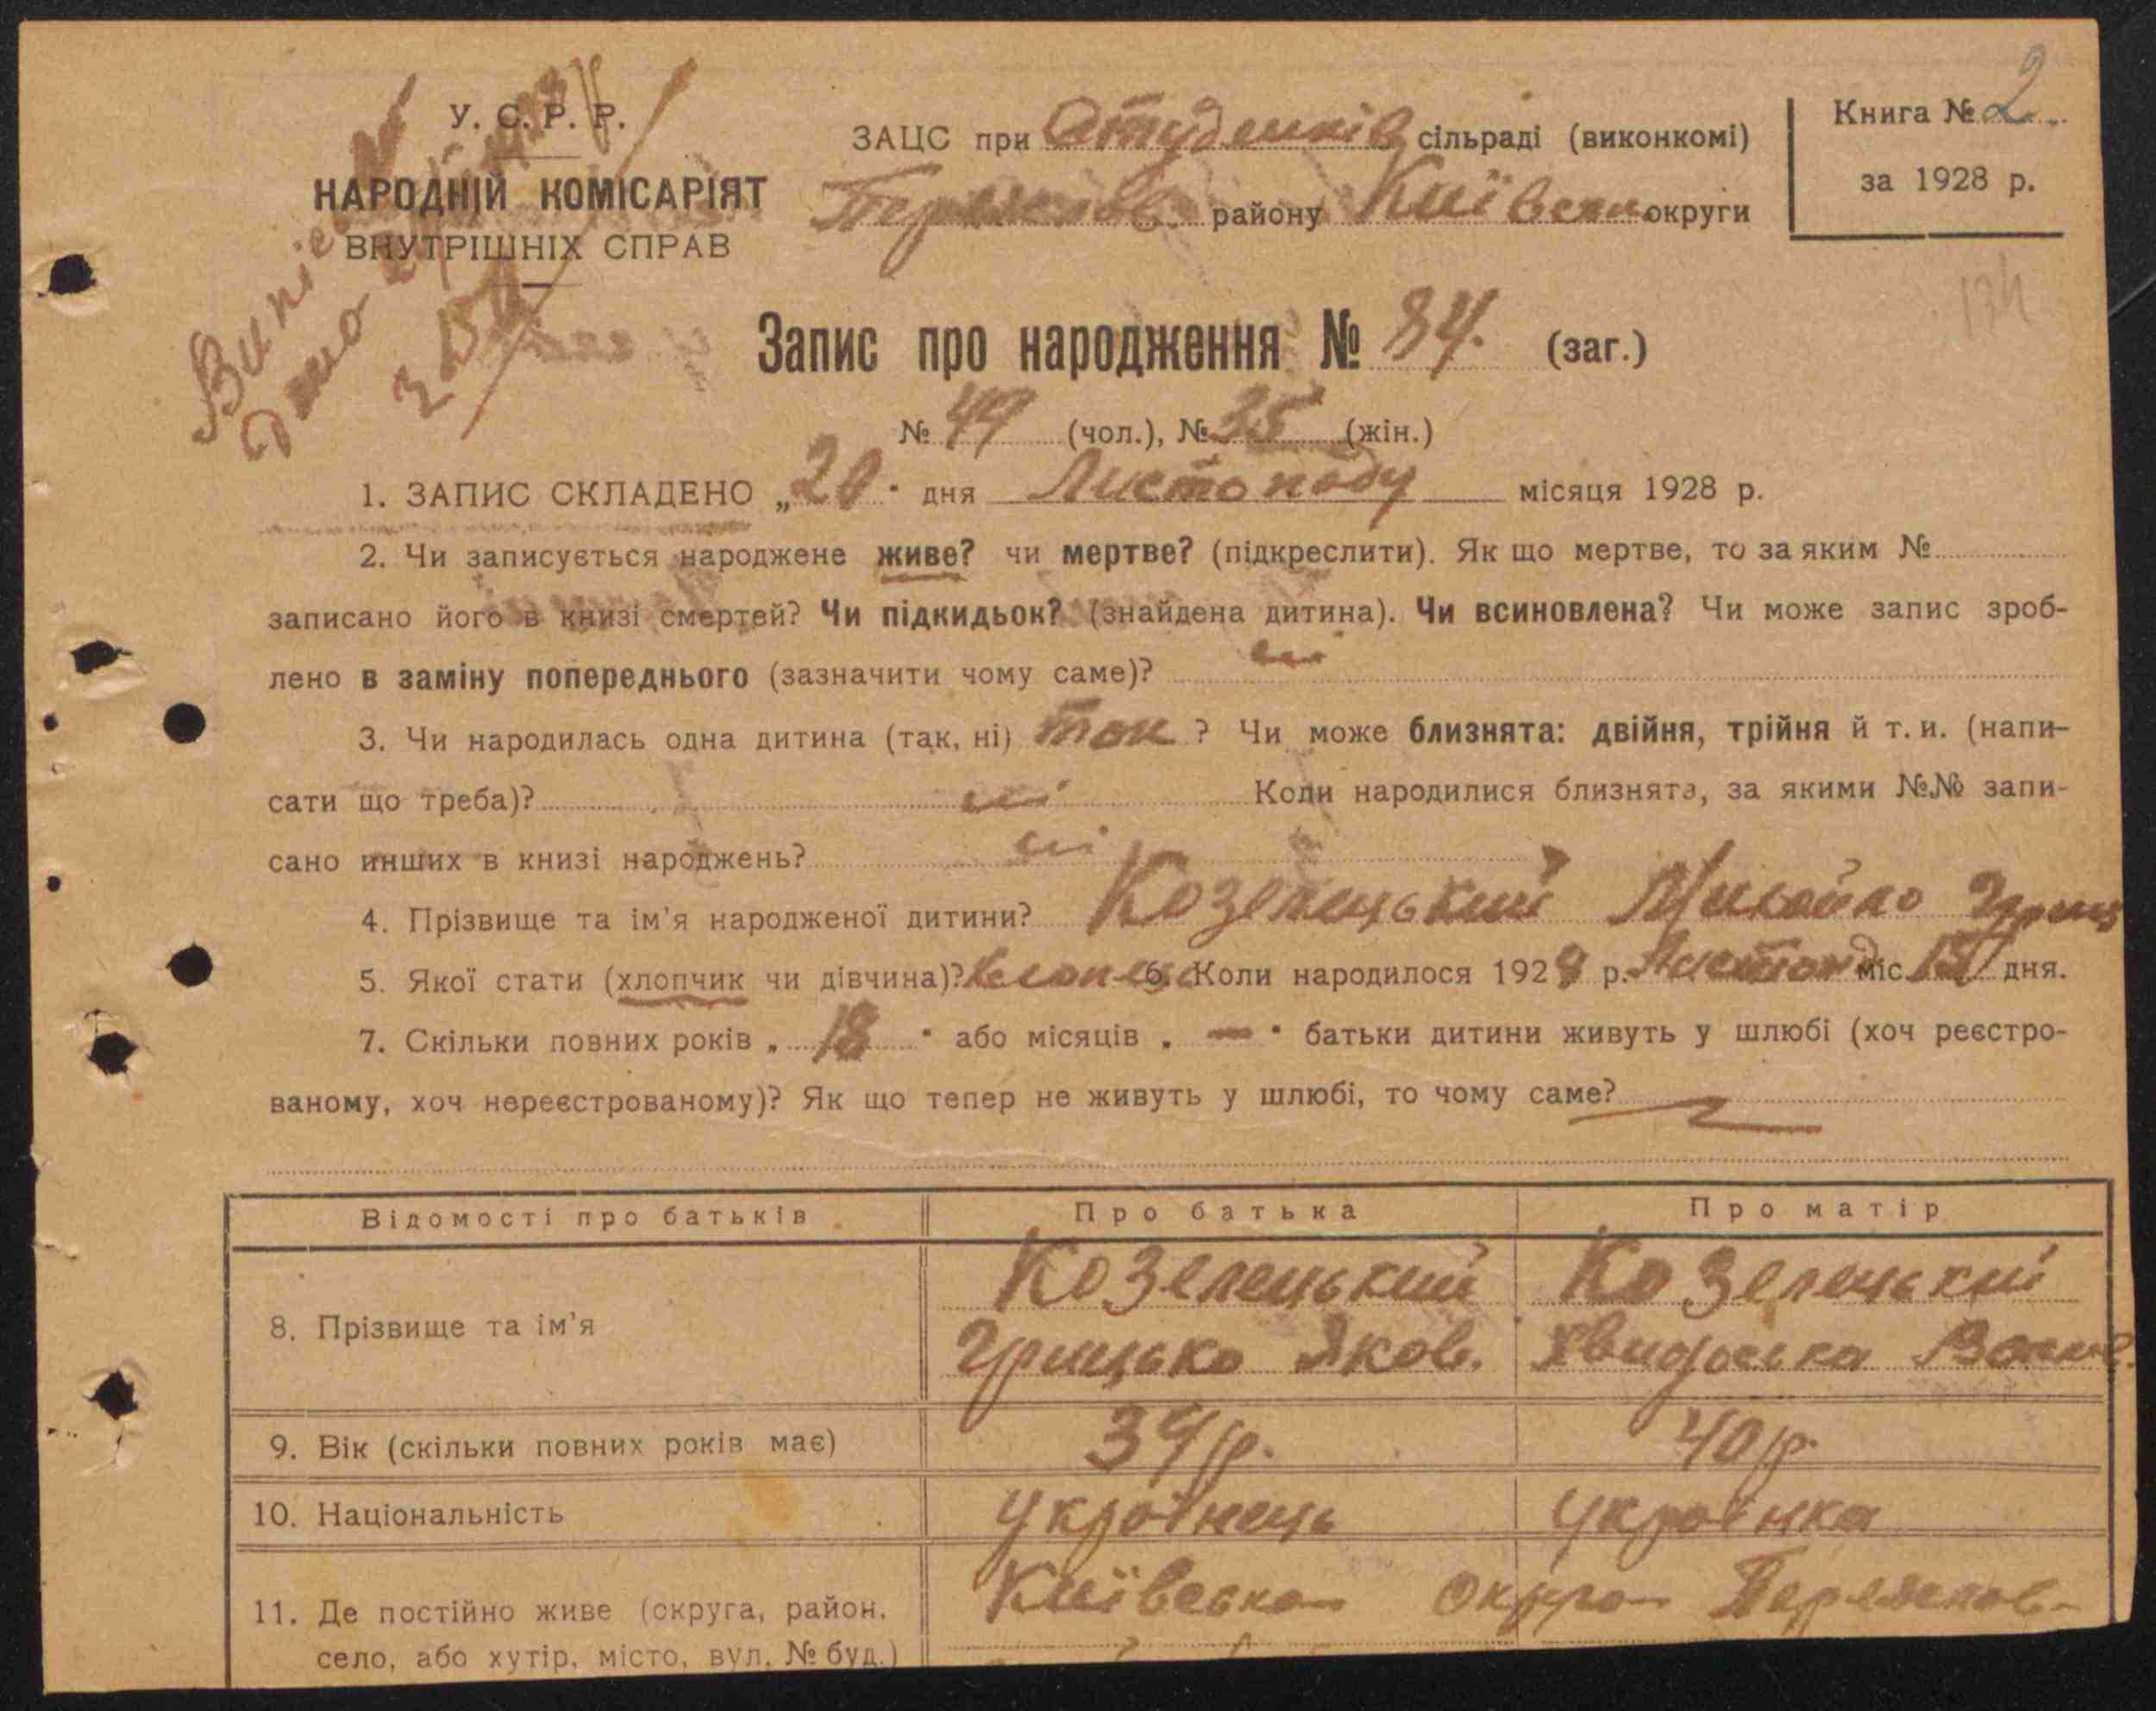 У. С. Р. Р.
НАРОДНІЙ КОМІСАРІЯТ
ВНУТРІШНІХ СПРАВ
ЗАЦС при Студенків сільраді (виконкомі)
району Київськ округи
Книга № 2
за 1928 р.
Запис про народження № 84. (заг.)
№ 49 (чол.), № 35 (жін.)
1. ЗАПИС СКЛАДЕНО „20" дня Листопаду місяця 1928 р.
2. Чи записується народжене живе? чи мертве? (підкреслити). Як що мертве, то за яким №
записано його в книзі смертей? Чи підкидьок? (знайдена дитина). Чи всиновлена? Чи може запис зроб-
лено в заміну попереднього (зазначити чому саме)? ні
3. Чи народилась одна дитина (так, ні) так ? Чи може близнята: двійня, трійня й т. и. (напи-
сати що треба)? ні Коли народилися близнята, за якими №№ запи-
сано инших в книзі народжень? ні
4. Прізвище та ім'я народженої дитини? Козелецький Михайло Гриц
5. Якої стати (хлопчик чи дівчина)? хлопець 6. Коли народилося 1928 р. Листопад міс. дня.
7. Скільки повних років „ 18 " або місяців „ — " батьки дитини живуть у шлюбі (хоч реєстро-
ваному, хоч нереєстрованому)? Як що тепер не живуть у шлюбі, то чому саме?
Відомості про батьків Про батька Про матір
8. Прізвище та ім'я
Козелецький
Грицько Яков.
Козелецькии
Хвидоська Васил.
9. Вік (скільки повних років має) 39 р. 40 р.
10. Національність Українець Українка
11. Де постійно живе (округа, район,
село, або хутір, місто, вул. № буд.)
Київська Округа Переяслав-